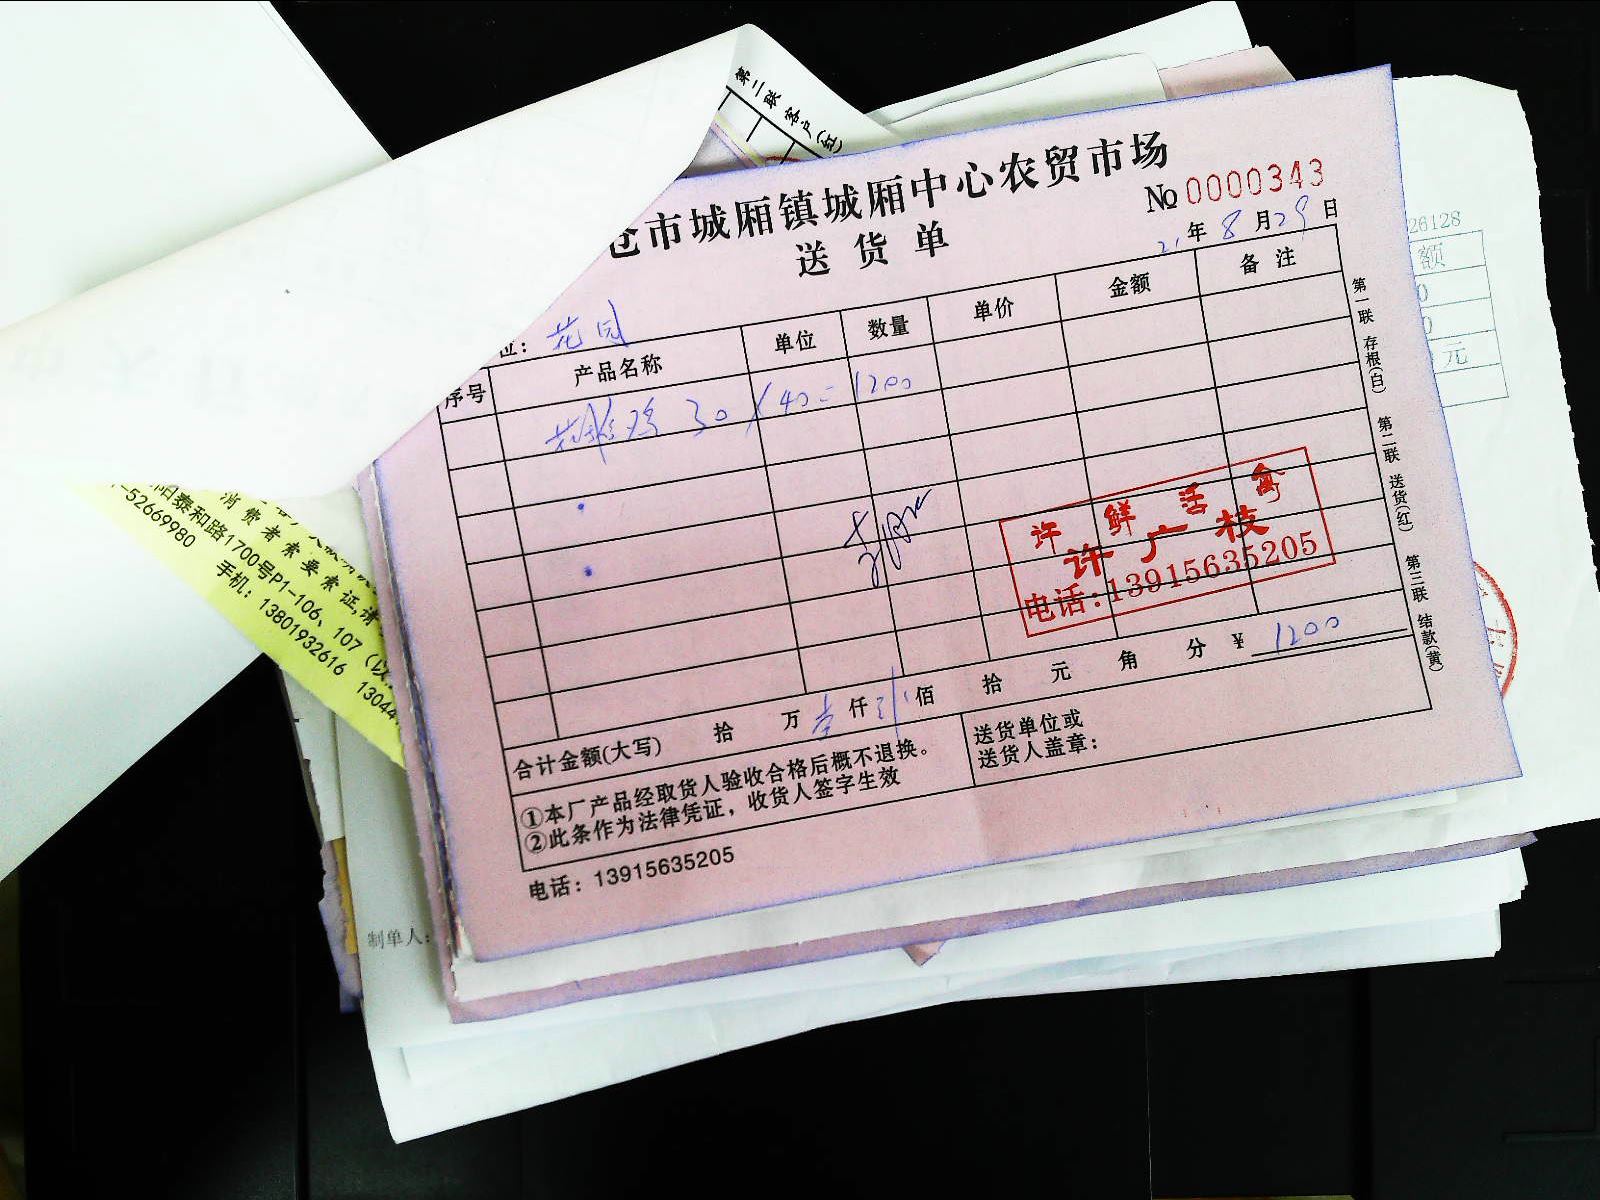 第二联 客户(红)
仓市城厢镇城厢中心农贸市场
送货单
№ 0000343
21年8月29日
位：花园
序号 产品名称 单位 数量 单价 金额 备注
鸡 30×40=1200
许鲜活禽
许广枝
电话:13915635205
合计金额(大写) 拾 万 壹仟 佰 拾 元 角 分 ¥ 1200
①本厂产品经取货人验收合格后概不退换。
②此条作为法律凭证，收货人签字生效
送货单位或
送货人盖章：
电话：13915635205
第一联 存根(白) 第二联 送货(红) 第三联 结款(黄)
消费者索要索证,请
阳泰和路1700号P1-106、107（以
-52669980
手机：13801932616 13044
制单人：
26128
额
元